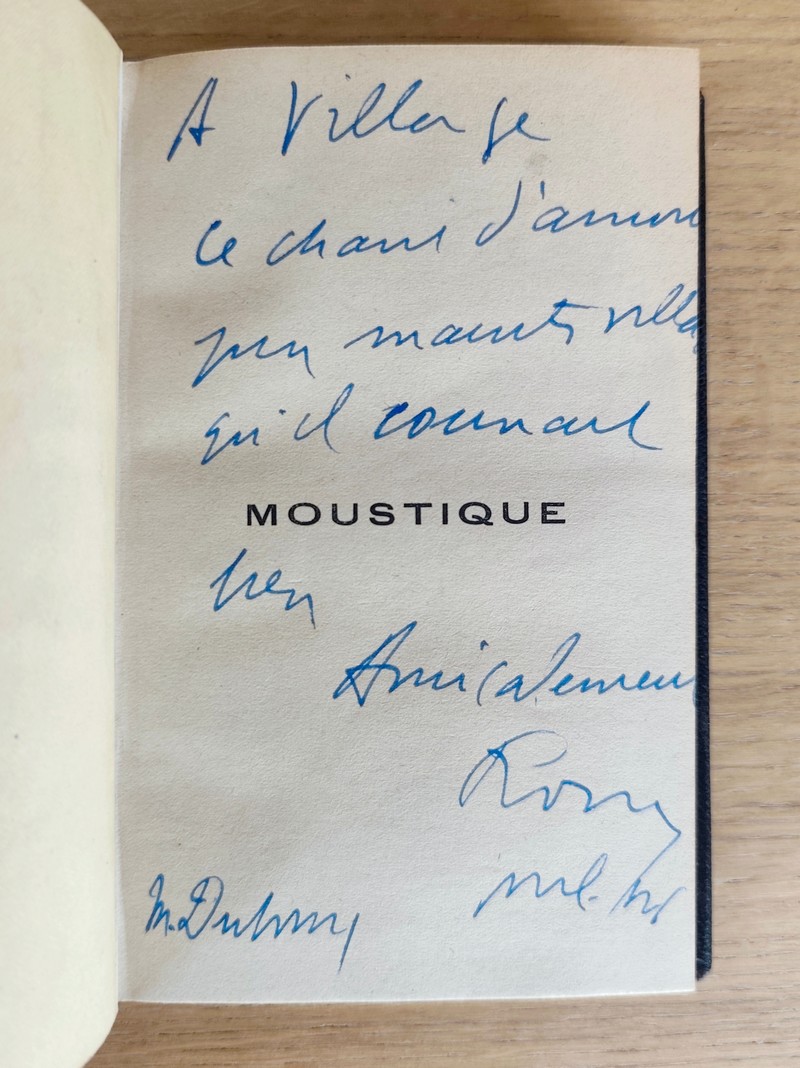 A Village
ce chant d'amour
pour maints villa
qu'il connait
MOUSTIQUE
bien
Amicalement
M. Dubour